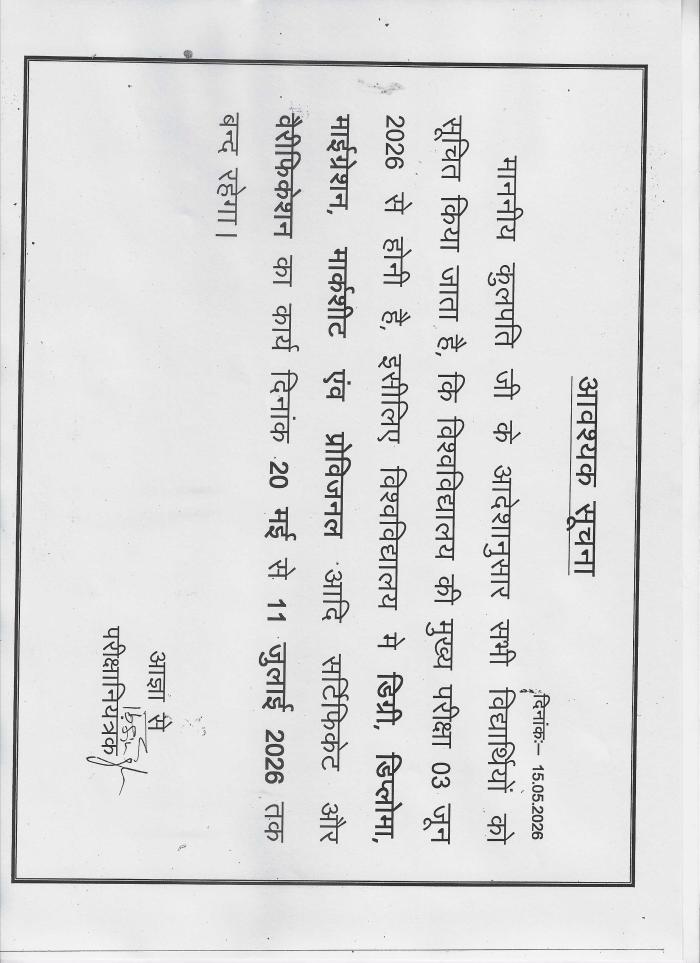 आवश्यक सूचना
दिनांक:– 15.05.2026
माननीय कुलपति जी के आदेशानुसार सभी विद्यार्थियों को
सूचित किया जाता है, कि विश्वविद्यालय की मुख्य परीक्षा 03 जून
2026 से होनी है, इसीलिए विश्वविद्यालय मे डिग्री, डिप्लोमा,
माईग्रेशन, मार्कशीट एंव प्रोविजनल आदि सर्टिफिकेट और
वैरीफिकेशन का कार्य दिनांक 20 मई से 11 जुलाई 2026 तक
बन्द रहेगा।
आज्ञा से
परीक्षानियंत्रक